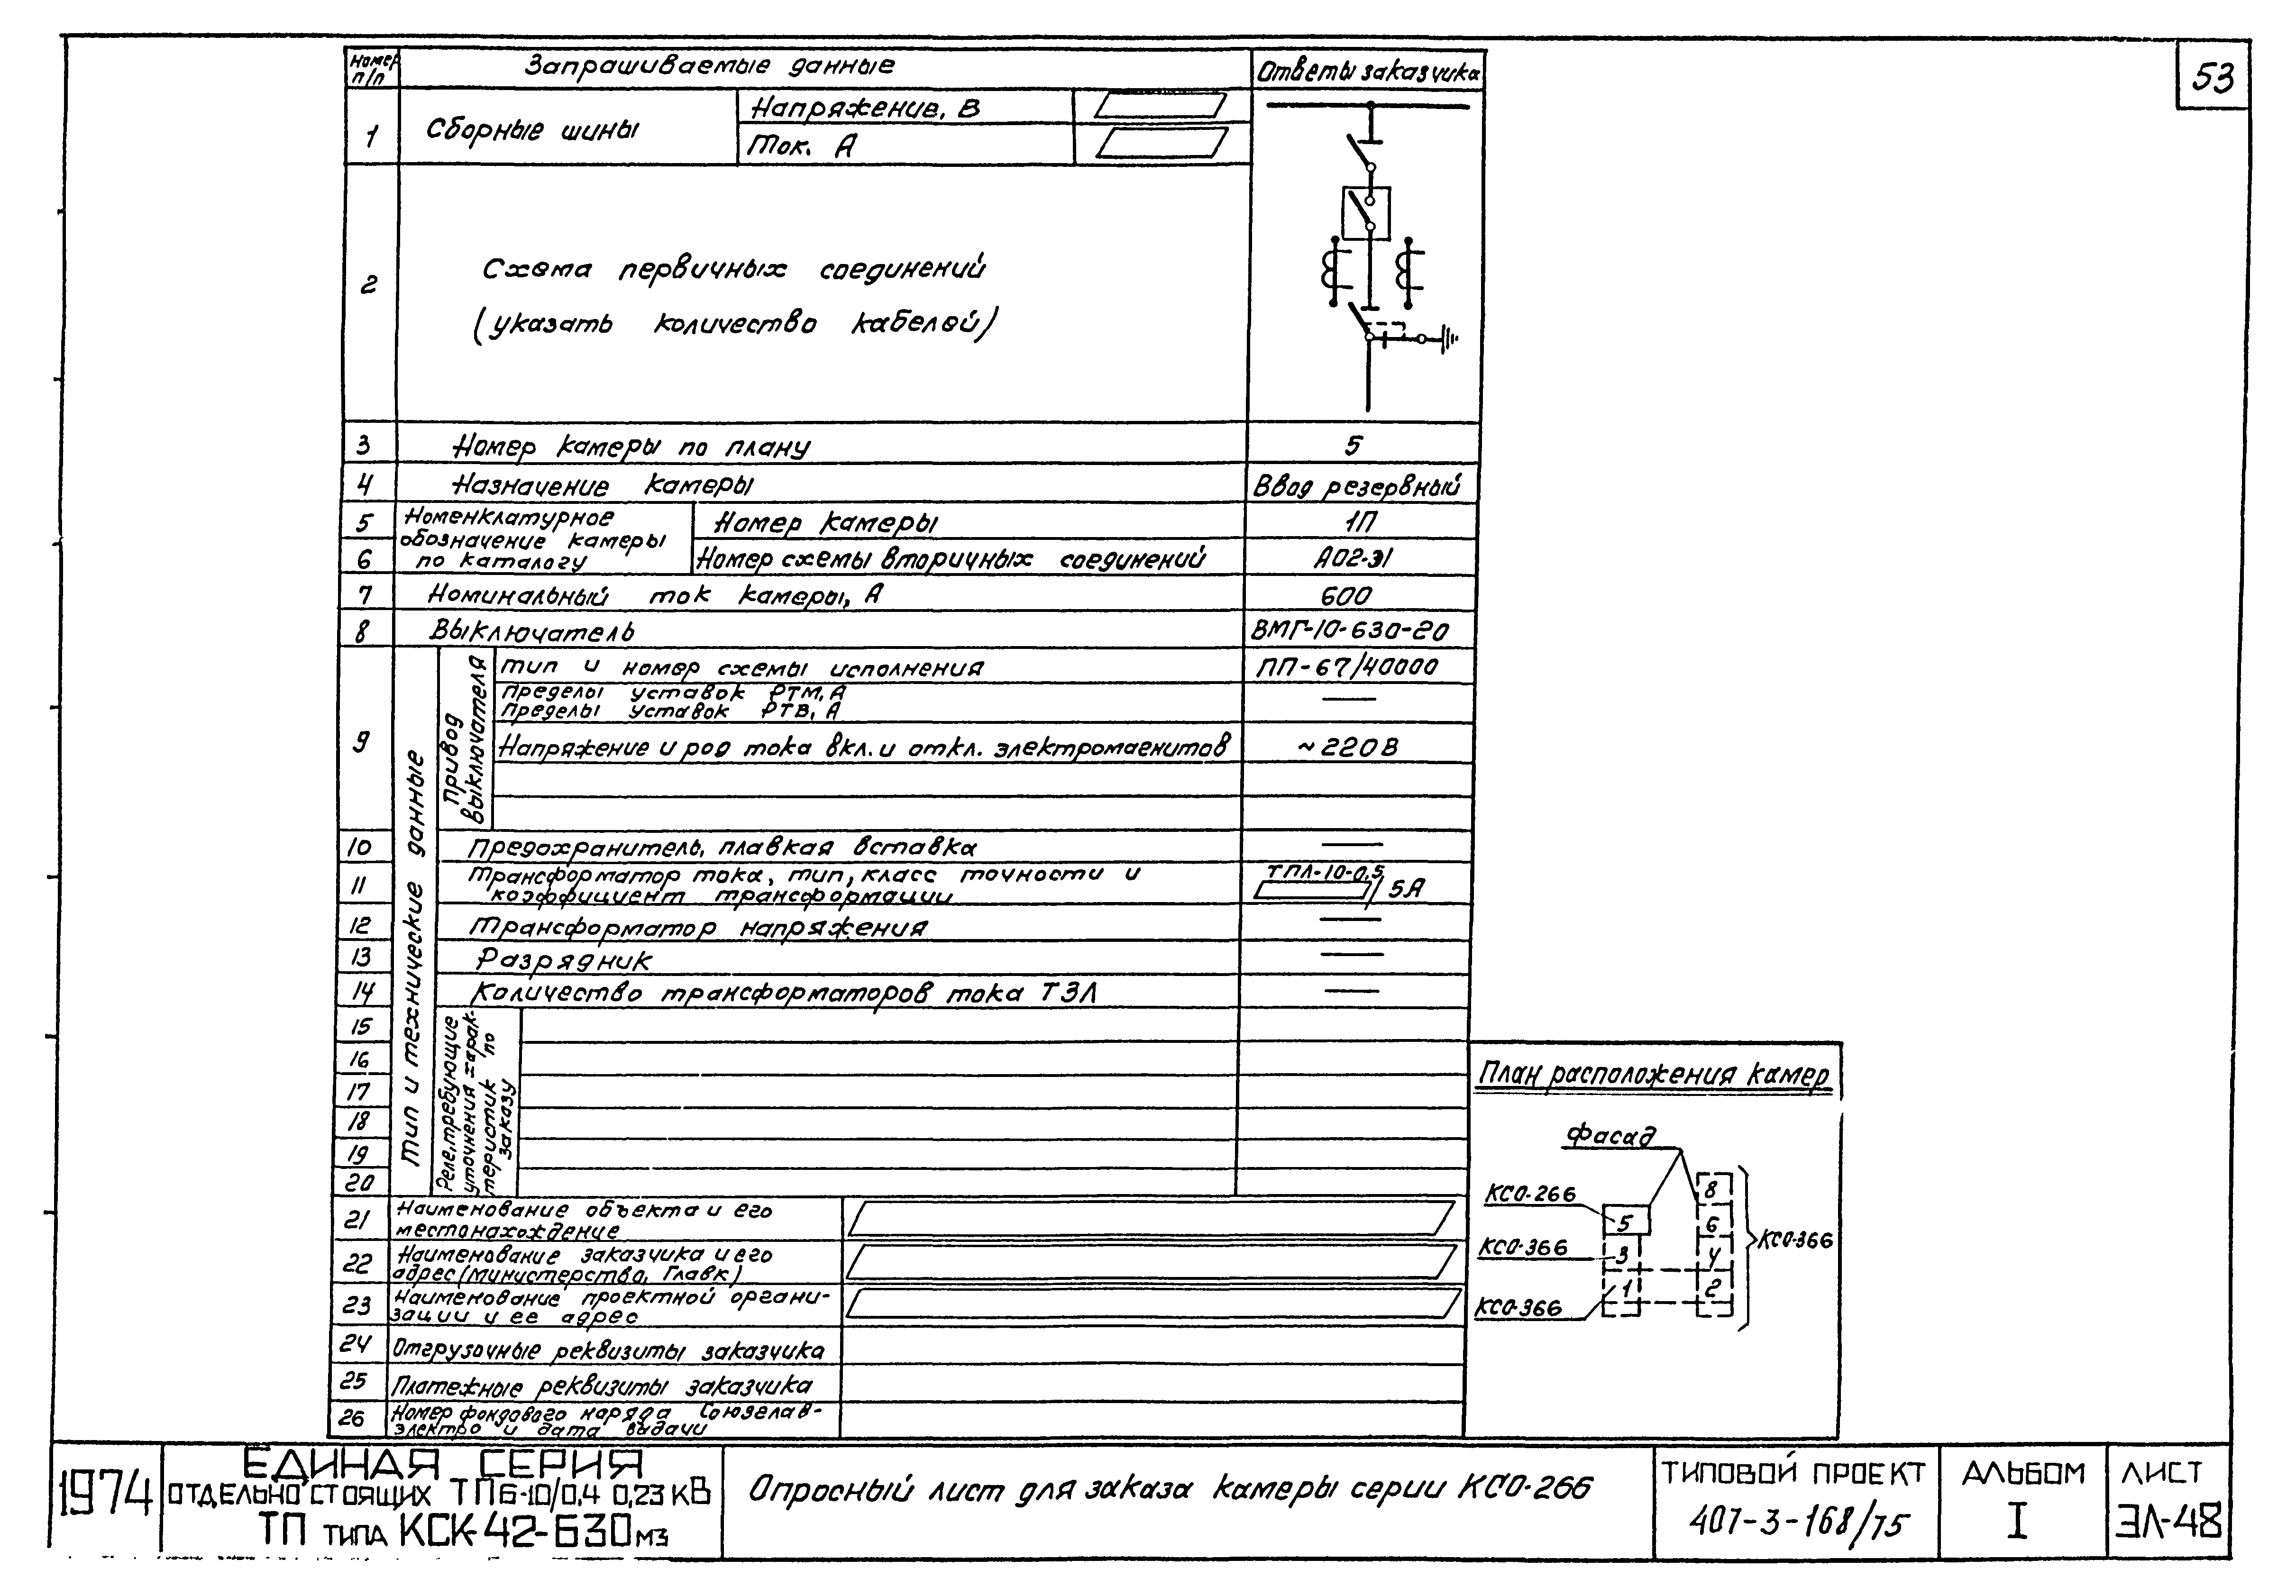 53
Номер п/п
Запрашиваемые данные
Ответы заказчика
1
Сборные шины
Напряжение, В
Ток. А
2
Схема первичных соединений
(указать количество кабелей)
3
Номер камеры по плану
5
4
Назначение камеры
Ввод резервный
5
Номенклатурное
обозначение камеры
по каталогу
Номер камеры
1П
6
Номер схемы вторичных соединений
А02-31
7
Номинальный ток камеры, А
600
8
Выключатель
ВМГ-10-630-20
Тип и технические данные
9
Привод
выключателя
тип и номер схемы исполнения
ПП-67/40000
Пределы уставок РТМ, А
Пределы уставок РТВ, А
—
Напряжение и род тока вкл. и откл. электромагнитов
~220В
10
Предохранитель, плавкая вставка
—
11
Трансформатор тока, тип, класс точности и
коэффициент трансформации
ТПЛ-10-0,5
/ 5А
12
Трансформатор напряжения
—
13
Разрядник
—
14
Количество трансформаторов тока ТЗЛ
—
15
16
17
18
19
20
Реле, требующие
уточнения харак-
теристик по
заказу
21
Наименование объекта и его
местонахождение
22
Наименование заказчика и его
адрес (министерство, Главк)
23
Наименование проектной органи-
зации и ее адрес
24
Отгрузочные реквизиты заказчика
25
Платежные реквизиты заказчика
26
Номер фондового наряда Союзглав-
электро и дата выдачи
План расположения камер
фасад
КСО-266
КСО-366
КСО-366
5
3
1
8
6
4
2
КСО-366
1974
ЕДИНАЯ СЕРИЯ
ОТДЕЛЬНО СТОЯЩИХ ТП 6-10/0,4 0,23 кВ
ТП ТИПА КСК-42-630 м3
Опросный лист для заказа камеры серии КСО-266
ТИПОВОЙ ПРОЕКТ
407-3-168/75
АЛЬБОМ
I
ЛИСТ
ЭЛ-48